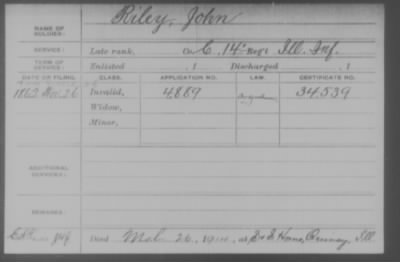 Riley, John
NAME OF SOLDIER:
SERVICE: Late rank, Co. C, 14 Reg't Ill. Inf.
TERM OF SERVICE: Enlisted , 1 Discharged , 1
DATE OF FILING. CLASS. APPLICATION NO. LAW. CERTIFICATE NO.
1862 Nov. 26 Invalid, 4889 34539
Widow,
Minor,
ADDITIONAL SERVICES:
REMARKS:
Died Mch 26, at Home, Quincy, Ill.